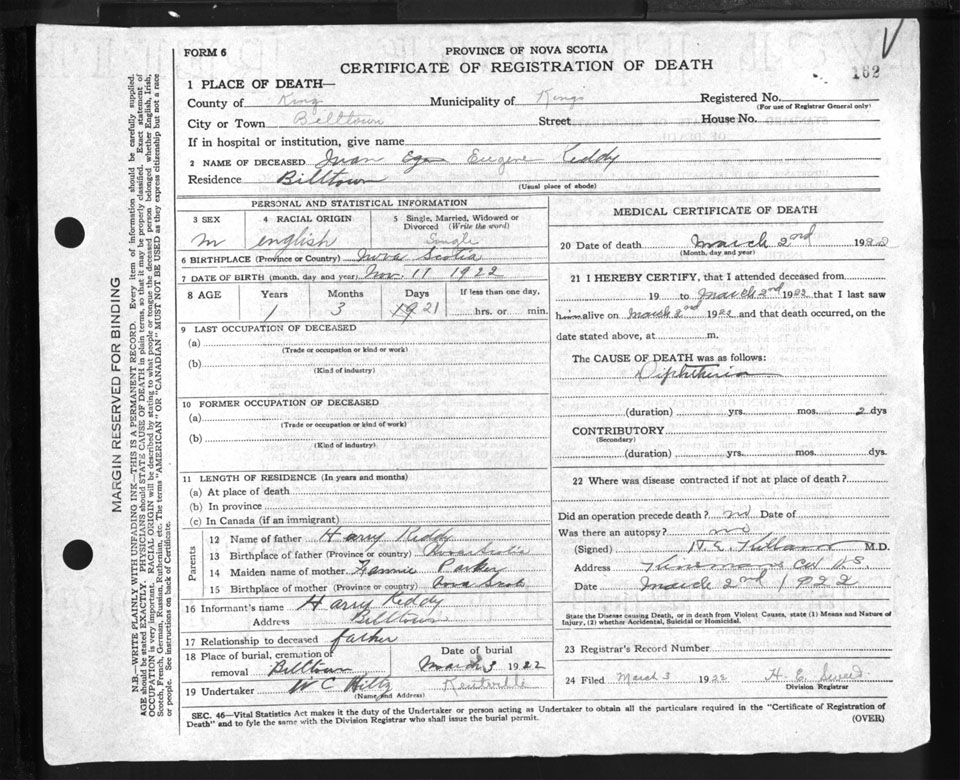 FORM 6
PROVINCE OF NOVA SCOTIA
CERTIFICATE OF REGISTRATION OF DEATH
162
1 PLACE OF DEATH—
County of Kings Municipality of Kings Registered No.
(For use of Registrar General only)
City or Town Billtown Street House No.
If in hospital or institution, give name
2 NAME OF DECEASED Eugene Reddy
Residence Billtown
(Usual place of abode)
PERSONAL AND STATISTICAL INFORMATION
3 SEX 4 RACIAL ORIGIN 5 Single, Married, Widowed or Divorced (Write the word)
m english Single
6 BIRTHPLACE (Province or Country) Nova Scotia
7 DATE OF BIRTH (month, day and year) Nov. 11 1922
8 AGE Years Months Days If less than one day,
1 3 19 21 hrs. or min.
9 LAST OCCUPATION OF DECEASED
(a)
(Trade or occupation or kind or work)
(b)
(Kind of industry)
10 FORMER OCCUPATION OF DECEASED
(a)
(Trade or occupation or kind of work)
(b)
(Kind of industry)
11 LENGTH OF RESIDENCE (In years and months)
(a) At place of death
(b) In province
(c) In Canada (if an immigrant)
Parents
12 Name of father Harry Reddy
13 Birthplace of father (Province or country) Nova Scotia
14 Maiden name of mother Fannie Parker
15 Birthplace of mother (Province or country) Nova Scot
16 Informant's name Harry Reddy
Address Billtown
17 Relationship to deceased father
18 Place of burial, cremation or removal Billtown
Date of burial
March 3 1922
19 Undertaker W C Hiltz Kentville
(Name and Address)
MEDICAL CERTIFICATE OF DEATH
20 Date of death March 2nd 1922
(Month, day and year)
21 I HEREBY CERTIFY, that I attended deceased from
19 to March 2nd 1922 that I last saw
him alive on March 2nd 1922 and that death occurred, on the
date stated above, at m.
The CAUSE OF DEATH was as follows:
Diphtheria
(duration) yrs. mos. 2 dys
CONTRIBUTORY
(Secondary)
(duration) yrs. mos. dys.
22 Where was disease contracted if not at place of death?
Did an operation precede death? no Date of
Was there an autopsy? no
(Signed) M.D.
Address N.S.
Date March 2nd 1922
State the Disease causing Death, or in death from Violent Causes, state (1) Means and Nature of
Injury, (2) whether Accidental, Suicidal or Homicidal.
23 Registrar's Record Number
24 Filed March 3 1922 H. E.
Division Registrar
SEC. 46—Vital Statistics Act makes it the duty of the Undertaker or person acting as Undertaker to obtain all the particulars required in the "Certificate of Registration of
Death" and to fyle the same with the Division Registrar who shall issue the burial permit.
(OVER)
MARGIN RESERVED FOR BINDING
N.B.—WRITE PLAINLY WITH UNFADING INK—THIS IS A PERMANENT RECORD. Every item of information should be carefully supplied.
AGE should be stated EXACTLY. PHYSICIANS should STATE CAUSE OF DEATH in plain terms, so that it may be properly classified. Exact statement of
OCCUPATION is very important. RACIAL ORIGIN will be described by stating to what people or tongue the deceased person belonged, whether English, Irish,
Scotch, French, German, Russian, Ruthenian, etc. The terms "AMERICAN" OR "CANADIAN" MUST NOT BE USED as they express citizenship but not a race
or people. See instructions on back of Certificate.